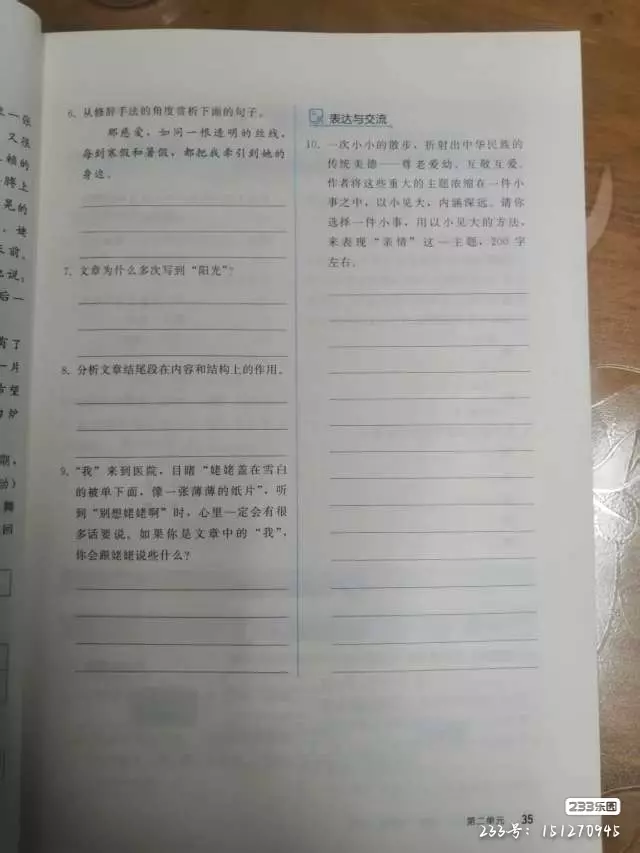 一张
又很
赖的
晃的
姥
天前,
后一
有了
一片
希望
期,
舞
回
6. 从修辞手法的角度赏析下面的句子。
那慈爱,如同一根透明的丝线,
每到寒假和暑假,都把我牵引到她的
身边。
7. 文章为什么多次写到“阳光”?
8. 分析文章结尾段在内容和结构上的作用。
9. “我”来到医院,目睹“姥姥盖在雪白
的被单下面,像一张薄薄的纸片”,听
到“别想姥姥啊”时,心里一定会有很
多话要说。如果你是文章中的“我”,
你会跟姥姥说些什么?
表达与交流
10. 一次小小的散步,折射出中华民族的
传统美德——尊老爱幼、互敬互爱。
作者将这些重大的主题浓缩在一件小
事之中,以小见大,内涵深远。请你
选择一件小事,用以小见大的方法,
来表现“亲情”这一主题,200 字
左右。
第二单元 35
233乐园
233号:151270945